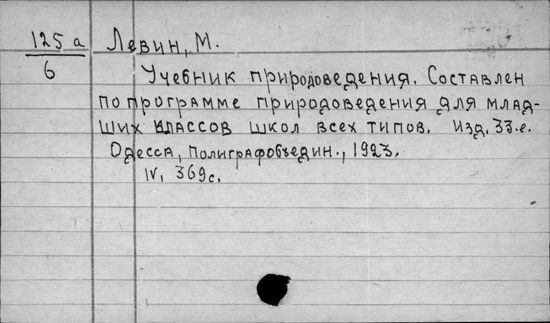 125 а
6
Левин, М.
Учебник природоведения. Составлен
по программе природоведения для млад-
ших классов школ всех типов. Изд. 33-е.
Одесса, Полиграфобъедин., 1923.
IV, 369с.